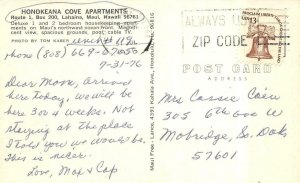 HONOKEANA COVE APARTMENTS
Route 1, Box 200, Lahaina, Maui, Hawaii 96761
Deluxe 1 and 2 bedroom housekeeping apart-
ments on Maui's northwest ocean front. Magnifi-
cent view, spacious grounds, pool, cable TV.
PHOTO BY TOM KASER
phone (808) 669-
7-31-76
Dear Mom, arrived
here today, will be
here 3 or 4 weeks. Not
staying at the place
I told you we would be.
This is nicer.
Love, Max & Cap
Maui Free - Lance, 4391 Kahala Ave., Honolulu, Hawaii 96816
ALWAYS U
ZIP CODE
13c
POST CARD
ADDRESS
Mrs Cassie Coén
305 6th Ave W
Mobridge, So. Dak
57601